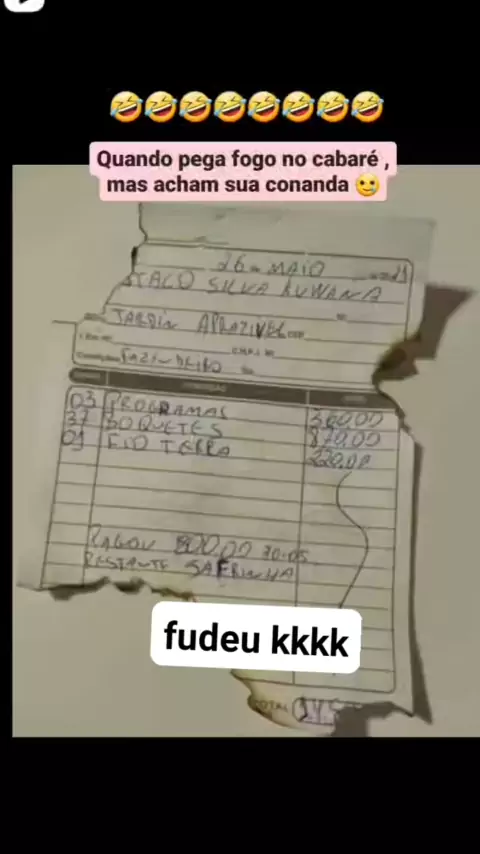 Quando pega fogo no cabaré ,
mas acham sua conanda
26 MAIO
SILVA
JARDIN APRAZIVEL
FAZINDEIRO
03 PROGRAMAS 360,00
37 BOQUETES 870,00
01 FIO TERRA 220,00
PAGOU 800,00 30-05
RESTANTE SAFRINHA
fudeu kkkk